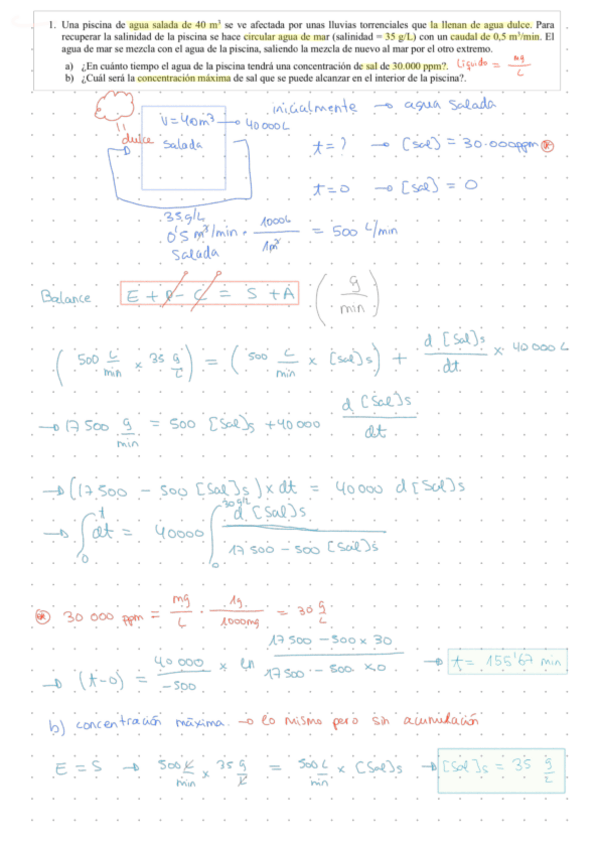 1. Una piscina de agua salada de 40 m³ se ve afectada por unas lluvias torrenciales que la llenan de agua dulce. Para
recuperar la salinidad de la piscina se hace circular agua de mar (salinidad = 35 g/L) con un caudal de 0,5 m³/min. El
agua de mar se mezcla con el agua de la piscina, saliendo la mezcla de nuevo al mar por el otro extremo.
a) ¿En cuánto tiempo el agua de la piscina tendrá una concentración de sal de 30.000 ppm?. líquido = mg/L
b) ¿Cuál será la concentración máxima de sal que se puede alcanzar en el interior de la piscina?.
inicialmente → agua salada
V = 40m³ → 40000L
dulce
salada
t = ? → [sal] = 30.000ppm *
t = 0 → [sal] = 0
35g/L
0'5 m³/min · 1000L/1m³ = 500 L/min
salada
Balance E + P - C = S + A (g/min)
(500 L/min × 35 g/L) = (500 L/min × [sal]s) + d[sal]s/dt × 40000 L
→ 17500 g/min = 500 [sal]s + 40000 d[sal]s/dt
→ (17500 - 500 [sal]s) × dt = 40000 d[sal]s
→ ∫₀ᵗ dt = 40000 ∫₀^30g/L d[sal]s / 17500 - 500 [sal]s
* 30 000 ppm = mg/L · 1g/1000mg = 30 g/L
→ (t-0) = 40000/-500 × ln 17500 - 500 × 30 / 17500 - 500 × 0 → t = 155'67 min
b) concentración máxima → lo mismo pero sin acumulación
E = S → 500 L/min × 35 g/L = 500 L/min × [sal]s → [sal]s = 35 g/L